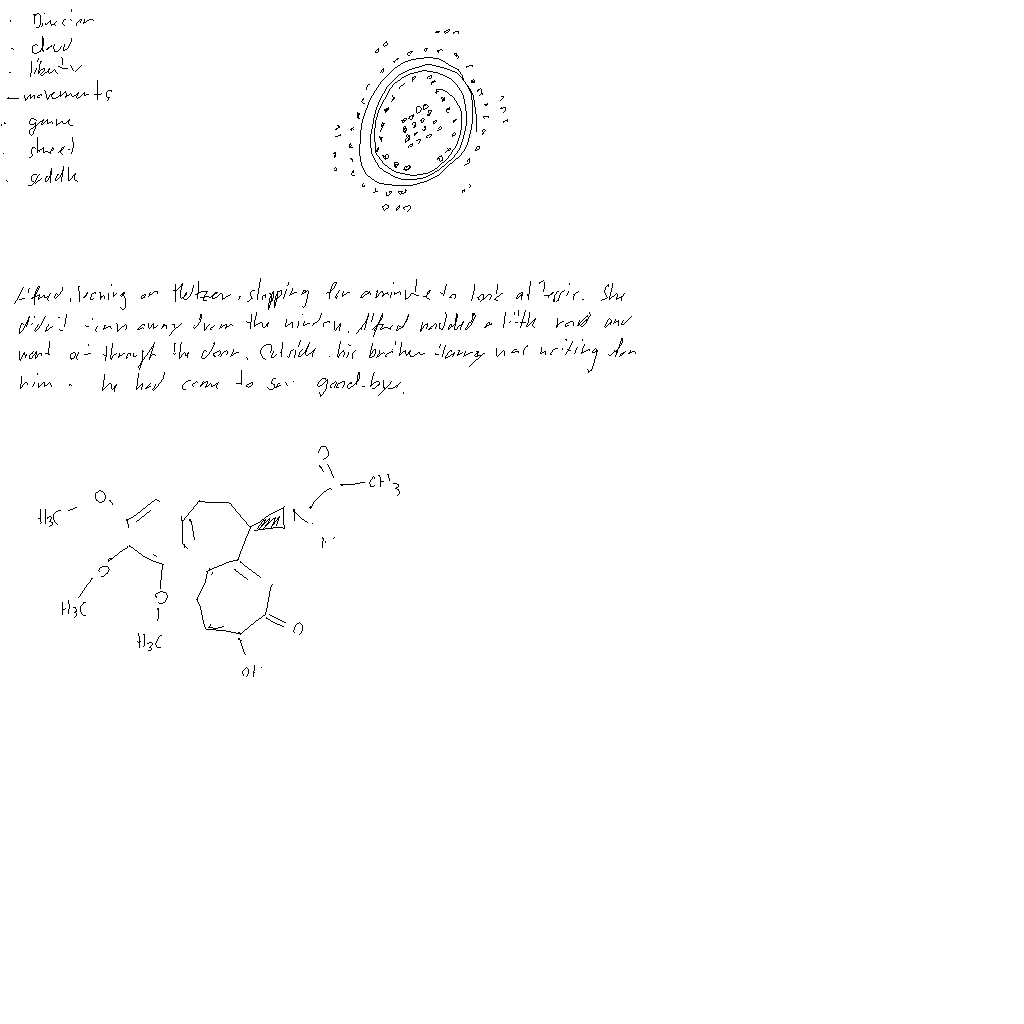 cloud
liberty
- movements
game
street
saddle
Alfred, leaning on Meltzer, stopping for a minute to look at Jessie. She
didn't turn away from the window. Alfred nodded a little and
went out through the door. Outside his brother Harry was waiting for
him. he had come to say good-bye.
O
CH3
H3C O N
O O
H3C
H3C O
OH